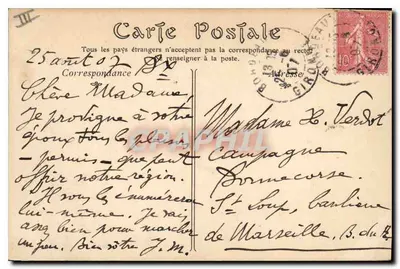 III
Carte Postale
Tous les pays étrangers n'acceptent pas la correspondance au recto
se renseigner à la poste.
Correspondance
Adresse
25 août 07 Bx
Chère Madame,
Je prodigue à votre
époux tous les plaisirs
permis que peut
offrir notre région.
Il vous les énumérera
lui-même. Je vais
assez bien pour marcher
un peu. Bien vôtre J. M.
Madame X. Verdot
Campagne
Bonnecorse
St Loup, banlieue
de Marseille, B. du R.
BORDEAUX
GIRONDE
07